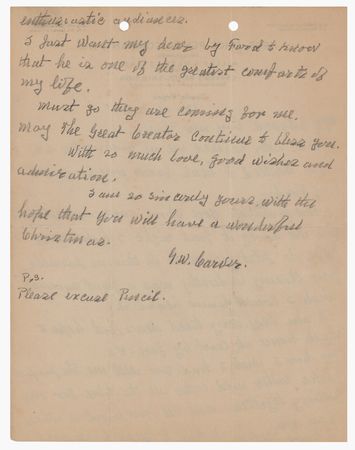 enthusiastic audiences.
I just want my dear by Ford to know
that he is one of the greatest comforts of
my life.
Must go they are coming for me.
May the Great Creator continue to bless you.
With so much love, good wishes and
admiration.
I am so sincerely yours, with the
hope that you will have a wonderful
Christmas.
G.W. Carver.
P.S.
Please excuse Pencil.